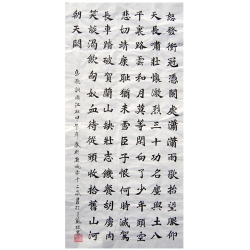 怒發衝冠憑闌處瀟瀟雨歇抬望眼仰
天長嘯壯懷激烈三十功名塵與土八
千里路雲和月莫等閒白了少年頭空
悲切靖康恥猶未雪臣子恨何時滅駕
長車踏破賀蘭山缺壯志飢餐胡虜肉
笑談渴飲匈奴血待從頭收拾舊山河
朝天闕
岳飛詞滿江紅